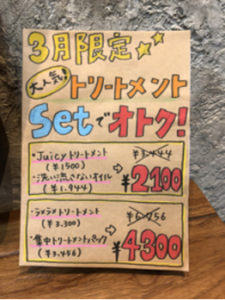 3月限定
大人気!
トリートメント
Setでオトク!
・Juicyトリートメント
(¥1500)
・洗い流さないオイル
(¥1.944)
¥3.444
¥2,100
トリートメント
(¥3.300)
・集中トリートメントパック
(¥3.456)
¥4300